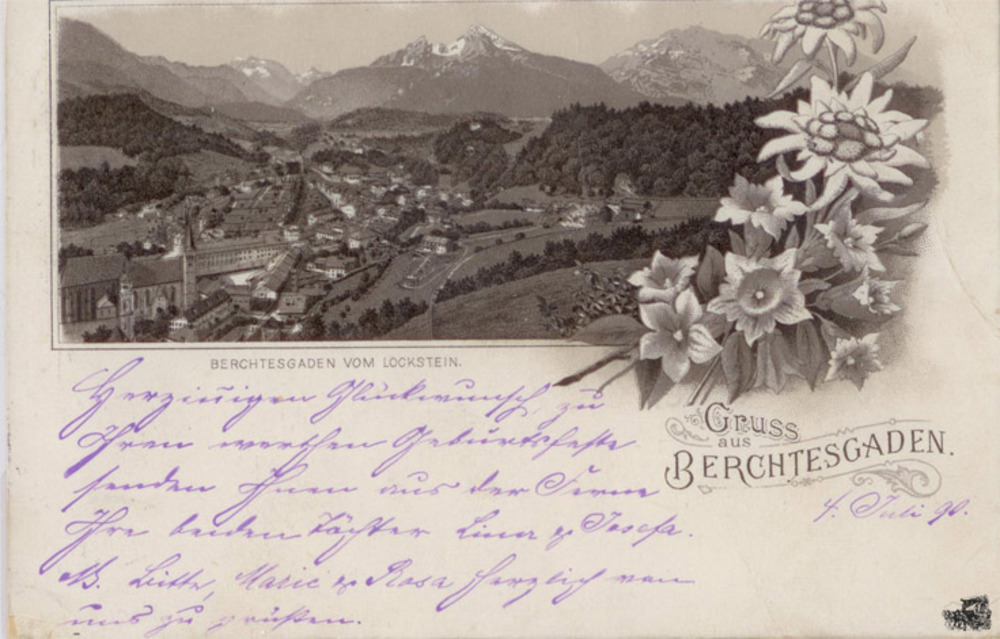 BERCHTESGADEN VOM LOCKSTEIN.
Gruss
aus
BERCHTESGADEN.
4. Juli 90.
Herzinnigen Glückwunsch zu
Ihren werthen Geburtsfeste
senden Ihnen aus der Ferne
Ihre beiden Töchter Lina & Josefa.
NB. Bitte, Marie & Rosa herzlich von
uns zu grüßen.